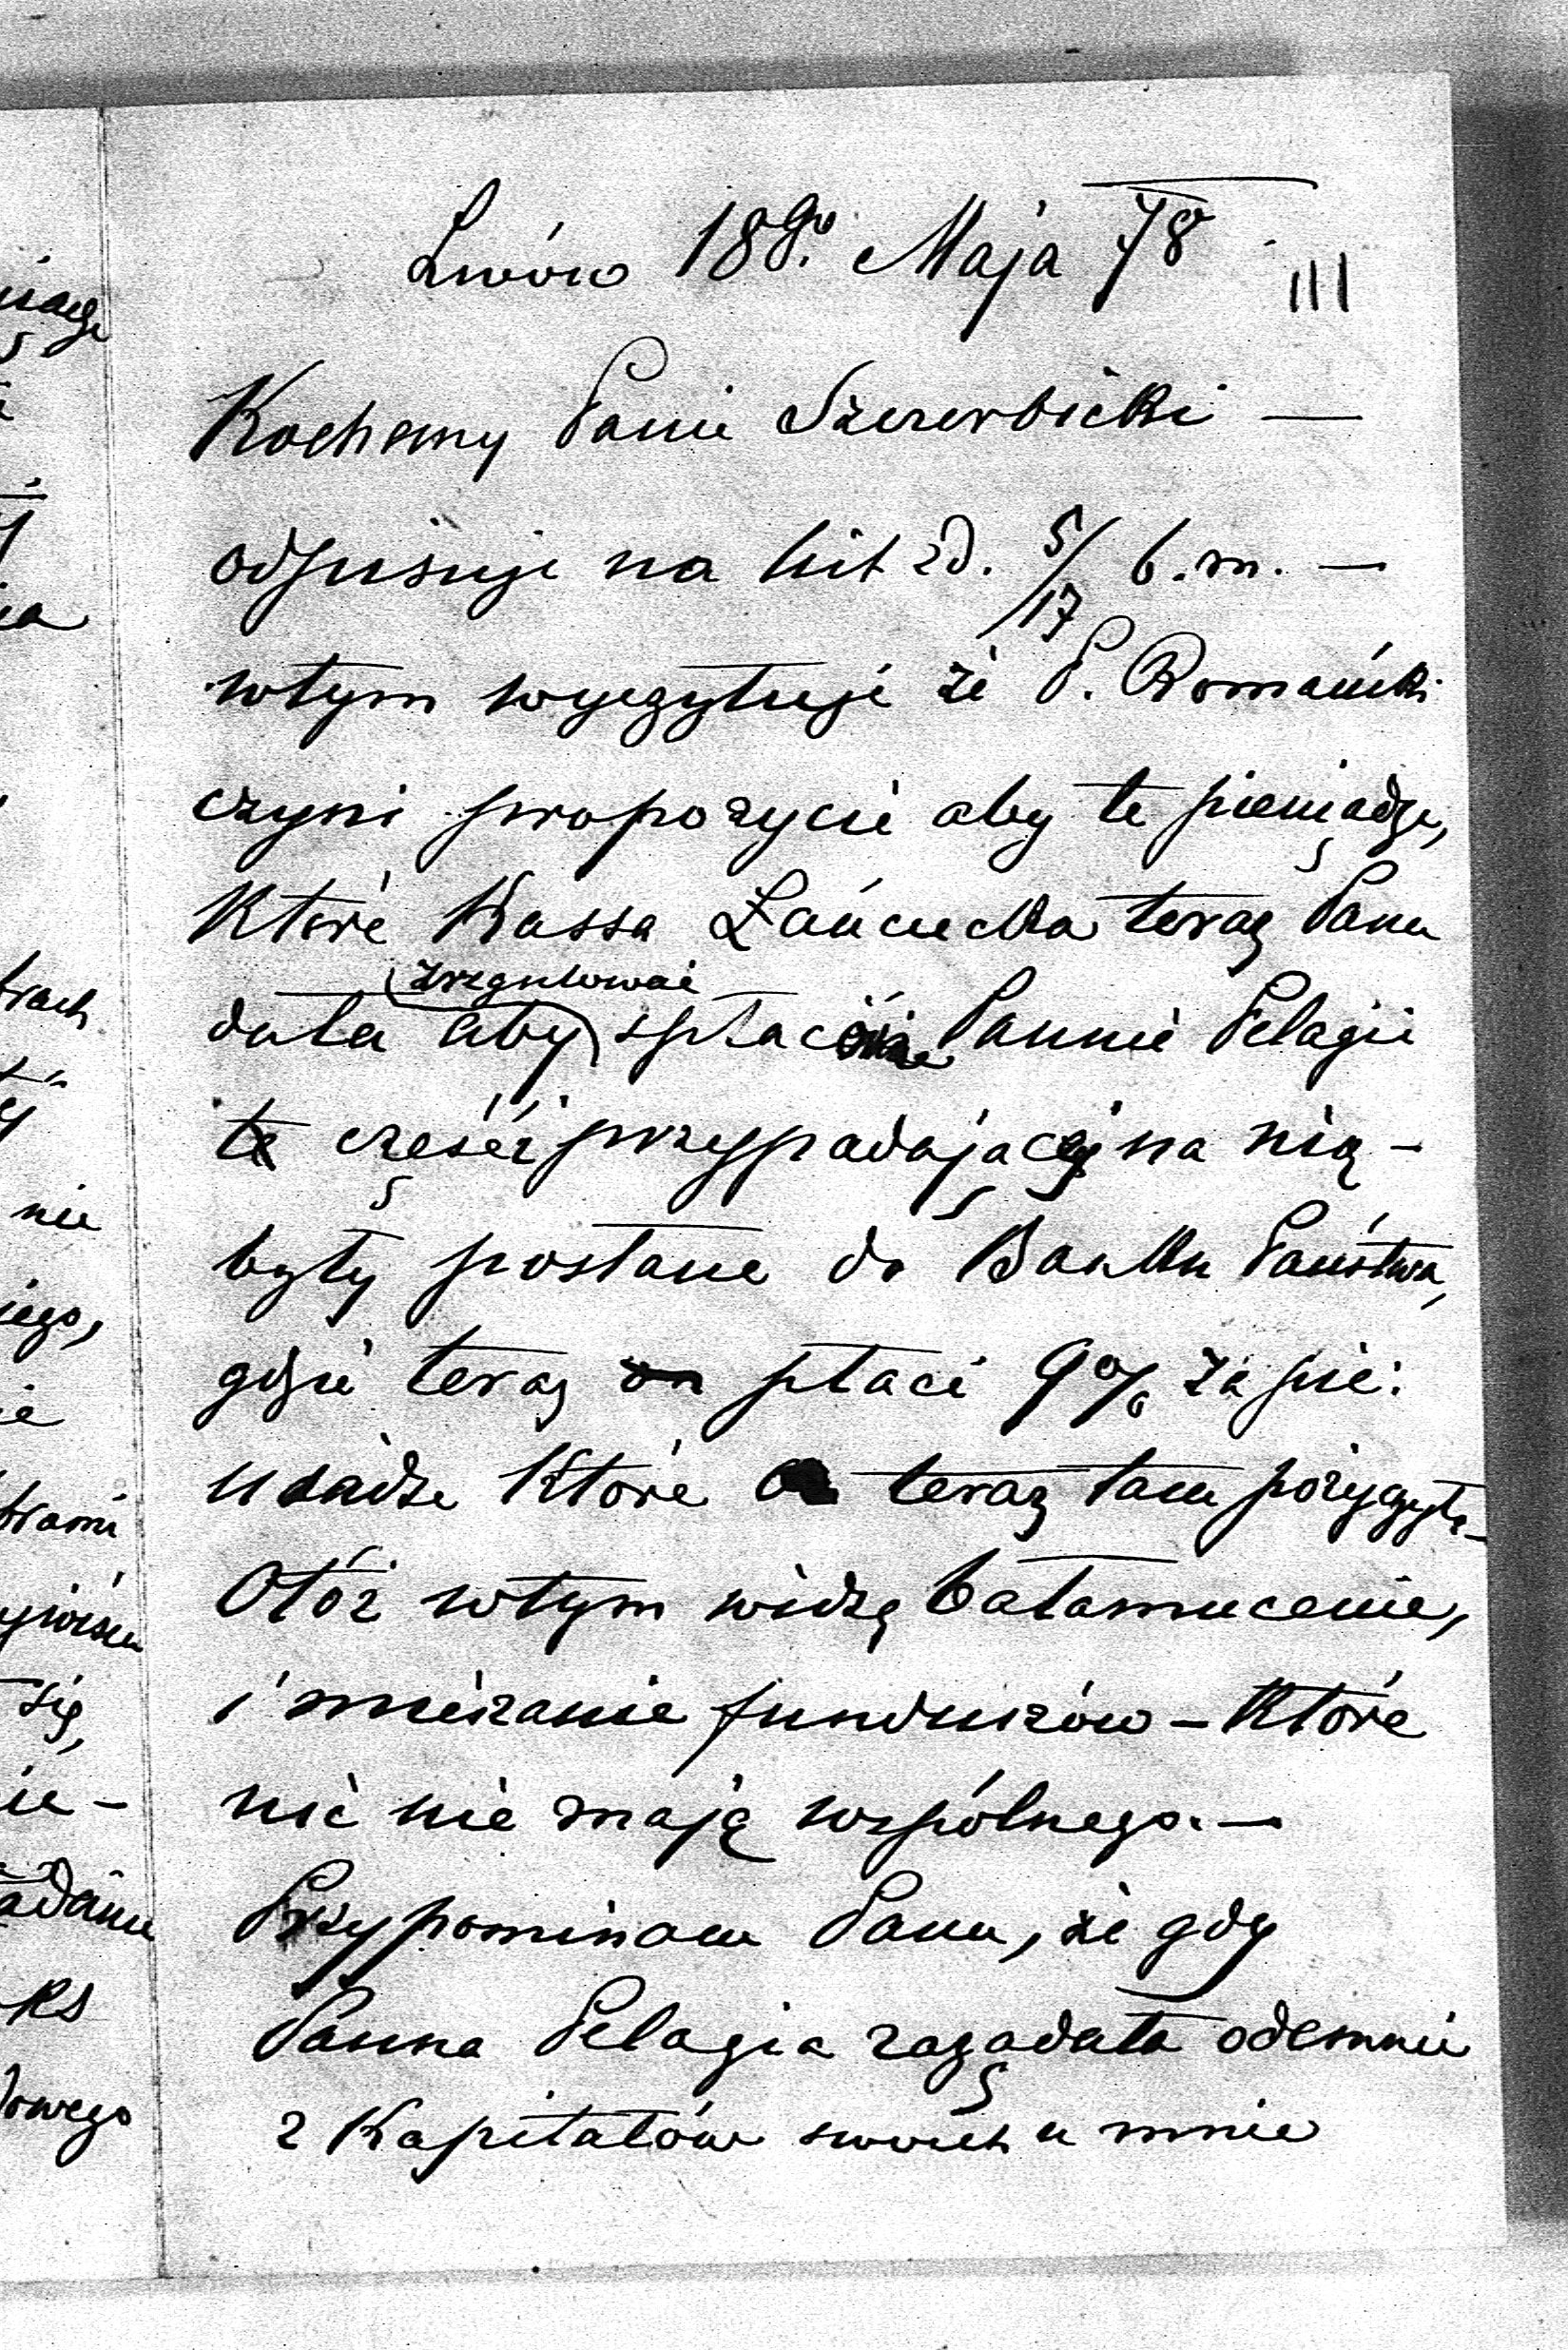 Lwów 18go. Maja 78
III
Kochany Panie Szczerbicki —
odpisuję na list zd. 5/17 b.m. —
wtym wyczytuję że P. Romański
czyni propozycie aby te pieniądze,
które Kassa Łańcucka teraz Panu
dała aby zregulować spłacone Pannie Pelagii
tę cześć przypadającej na nią –
były posłane do Banku Państwa,
gdzie teraz on płaci 9% za pie:
niądze które teraz tam pożyczył –
Otóż wtym widzę bałamucenie,
i mieszanie funduszów – które
nic nie mają wspólnego. —
Przypominam Panu, że gdy
Panna Pelagia zażądała odemnie
z Kapitałów swoich u mnie
rach
nie
iego,
ie
trami
się,
ie –
adaniu
ks
dowego